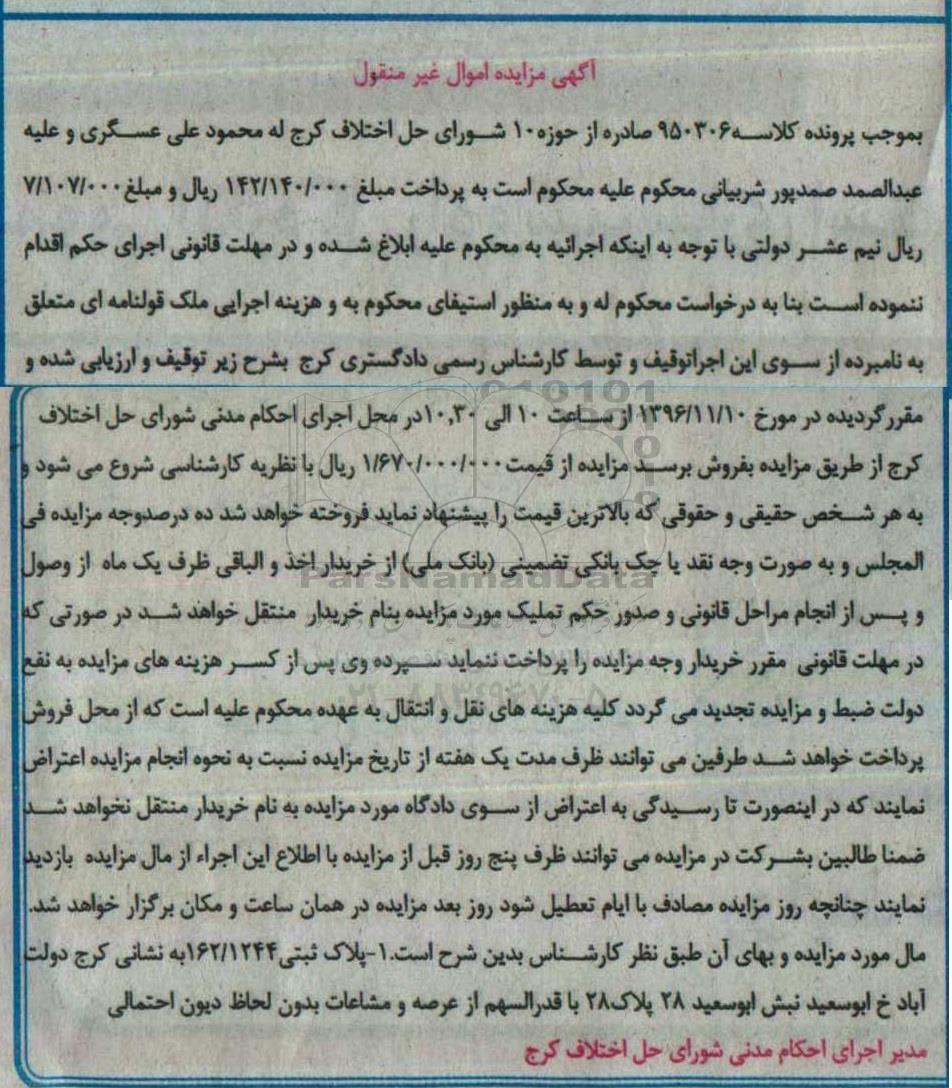 آگهی مزایده اموال غیر منقول
بموجب پرونده کلاسه۹۵۰۳۰۶ صادره از حوزه۱۰ شورای حل اختلاف کرج له محمود علی عسگری و علیه
عبدالصمد صمدپور شربیانی محکوم علیه محکوم است به پرداخت مبلغ ۱۴۲/۱۴۰/۰۰۰ ریال و مبلغ۷/۱۰۷/۰۰۰
ریال نیم عشر دولتی با توجه به اینکه اجرائیه به محکوم علیه ابلاغ شده و در مهلت قانونی اجرای حکم اقدام
ننموده است بنا به درخواست محکوم له و به منظور استیفای محکوم به و هزینه اجرایی ملک قولنامه ای متعلق
به نامبرده از سوی این اجراتوقیف و توسط کارشناس رسمی دادگستری کرج بشرح زیر توقیف و ارزیابی شده و
مقررگردیده در مورخ ۱۳۹۶/۱۱/۱۰ از ساعت ۱۰ الی ۱۰,۳۰در محل اجرای احکام مدنی شورای حل اختلاف
کرج از طریق مزایده بفروش برسد مزایده از قیمت۱/۶۷۰/۰۰۰/۰۰۰ ریال با نظریه کارشناسی شروع می شود و
به هر شخص حقیقی و حقوقی که بالاترین قیمت را پیشنهاد نماید فروخته خواهد شد ده درصدوجه مزایده فی
المجلس و به صورت وجه نقد یا چک بانکی تضمینی (بانک ملی) از خریدار اخذ و الباقی ظرف یک ماه از وصول
و پس از انجام مراحل قانونی و صدور حکم تملیک مورد مزایده بنام خریدار منتقل خواهد شد در صورتی که
در مهلت قانونی مقرر خریدار وجه مزایده را پرداخت ننماید سپرده وی پس از کسر هزینه های مزایده به نفع
دولت ضبط و مزایده تجدید می گردد کلیه هزینه های نقل و انتقال به عهده محکوم علیه است که از محل فروش
پرداخت خواهد شد طرفین می توانند ظرف مدت یک هفته از تاریخ مزایده نسبت به نحوه انجام مزایده اعتراض
نمایند که در اینصورت تا رسیدگی به اعتراض از سوی دادگاه مورد مزایده به نام خریدار منتقل نخواهد شد
ضمنا طالبین بشرکت در مزایده می توانند ظرف پنج روز قبل از مزایده با اطلاع این اجراء از مال مزایده بازدید
نمایند چنانچه روز مزایده مصادف با ایام تعطیل شود روز بعد مزایده در همان ساعت و مکان برگزار خواهد شد.
مال مورد مزایده و بهای آن طبق نظر کارشناس بدین شرح است.۱-پلاک ثبتی۱۶۲/۱۲۴۴به نشانی کرج دولت
آباد خ ابوسعید نبش ابوسعید ۲۸ پلاک۲۸ با قدرالسهم از عرصه و مشاعات بدون لحاظ دیون احتمالی
مدیر اجرای احکام مدنی شورای حل اختلاف کرج
ParsNamadData
۰۲۱-۸۸۳۴۹۶۷۰-۵